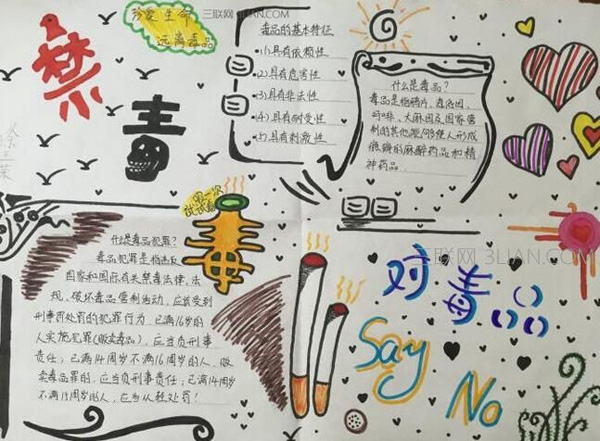 珍爱生命
远离毒品
三联网 3LIAN.COM
禁毒
毒品的基本特征
(1)具有依赖性
(2)具有危害性
(3)具有非法性
(4)具有耐受性
(5)具有刺激性
什么是毒品?
毒品是指鸦片、海洛因、
吗啡、大麻因及国家管
制的其他能够使人形成
瘾癖的麻醉药品和精
神药品
什么是毒品犯罪?
毒品犯罪是指违反
国家和国府有关禁毒法律、法
规、破坏毒品管制活动,应该受到
刑事罚处罚的犯罪行为,已满16岁的
人实施犯罪(贩卖毒品),应负刑事
责任;已满14周岁不满16周岁的人,贩
卖毒品罪的,应当负刑事责任;已满14周岁
不满18周岁的人,应当从轻处罚!
三联网 3LIAN.COM
对毒品
Say No